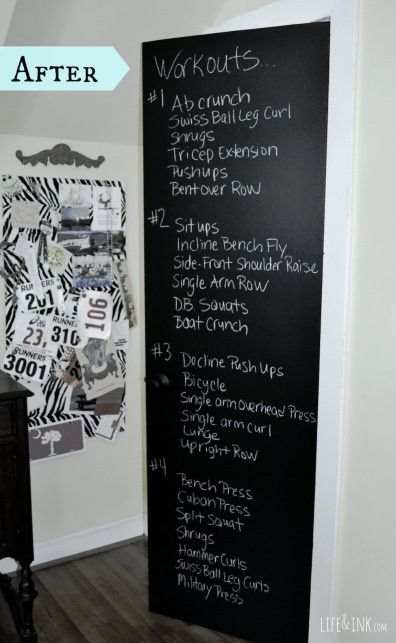 AFTER
Workouts...
#1 Ab crunch
Swiss Ball Leg Curl
Shrugs
Tricep Extension
Pushups
Bent over Row
#2 Sit ups
Incline Bench Fly
Side-Front Shoulder Raise
Single Arm Row
D.B. Squats
Boat Crunch
#3 Decline Push Ups
Bicycle
Single arm overhead Press
Single arm curl
Lunge
Upright Row
#4 Bench Press
Cuban Press
Split Squat
Shrugs
Hammer Curls
Swiss Ball Leg Curls
Military Press
RUNNERS
201
RUNNERS
106
23
310
RUNNERS
3001
LIFE&INK.COM